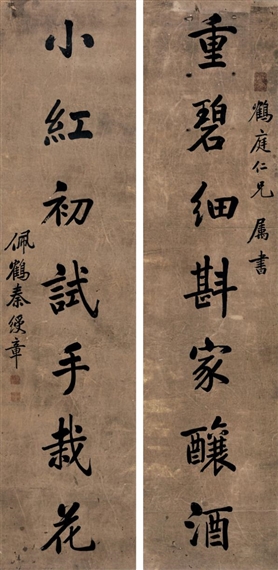 重碧細斟家釀酒
鶴庭仁兄屬書
小紅初試手栽花
佩鶴秦綬章